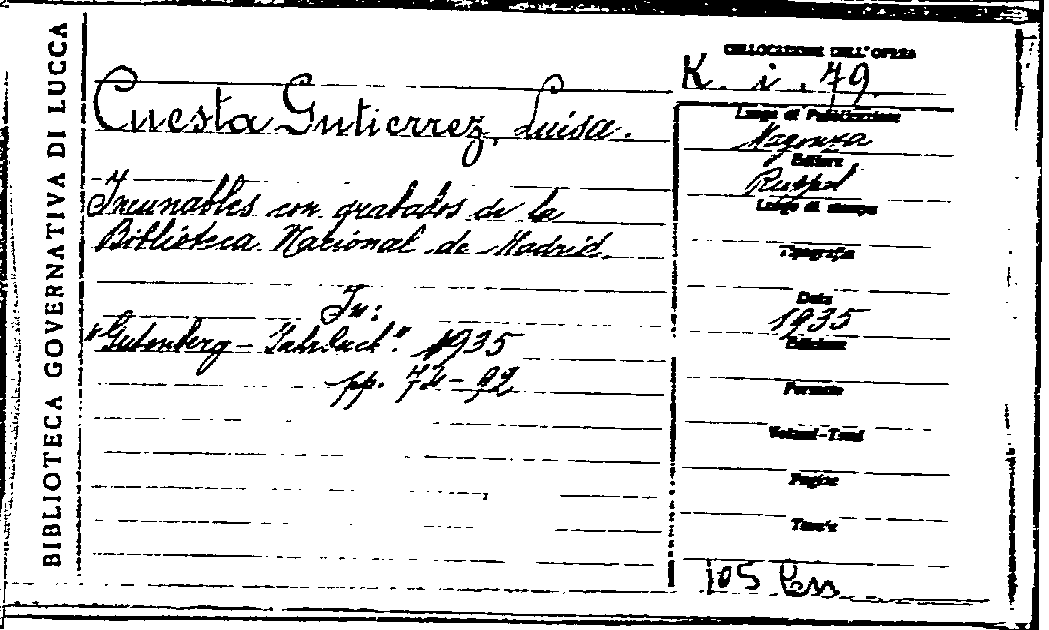 BIBLIOTECA GOVERNATIVA DI LUCCA
Cuesta Gutierrez, Luisa.
Incunables con grabados de la
Biblioteca Nacional de Madrid.
In:
"Gutenberg - Jahrbuch". 1935
pp.
COLLOCAZIONE DELL'OPERA
K. i. 79.
Luogo di Pubblicazione
Magonza
Editore
Ruppel
Luogo di stampa
Tipografia
Data
1935
Edizione
Formato
Volumi-Tomi
Pagine
Tavole
105